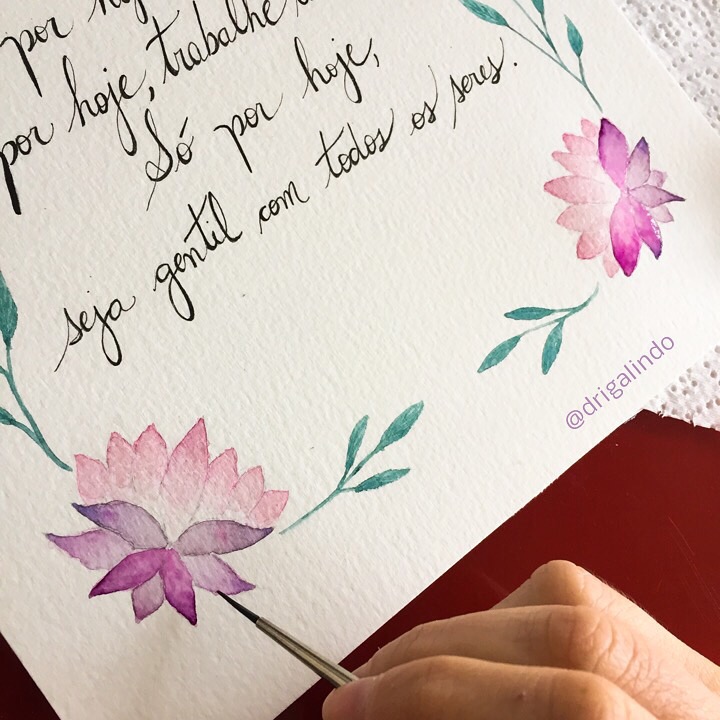 por hoje
por hoje, trabalhe
Só por hoje,
seja gentil com todos os seres.
@drigalindo